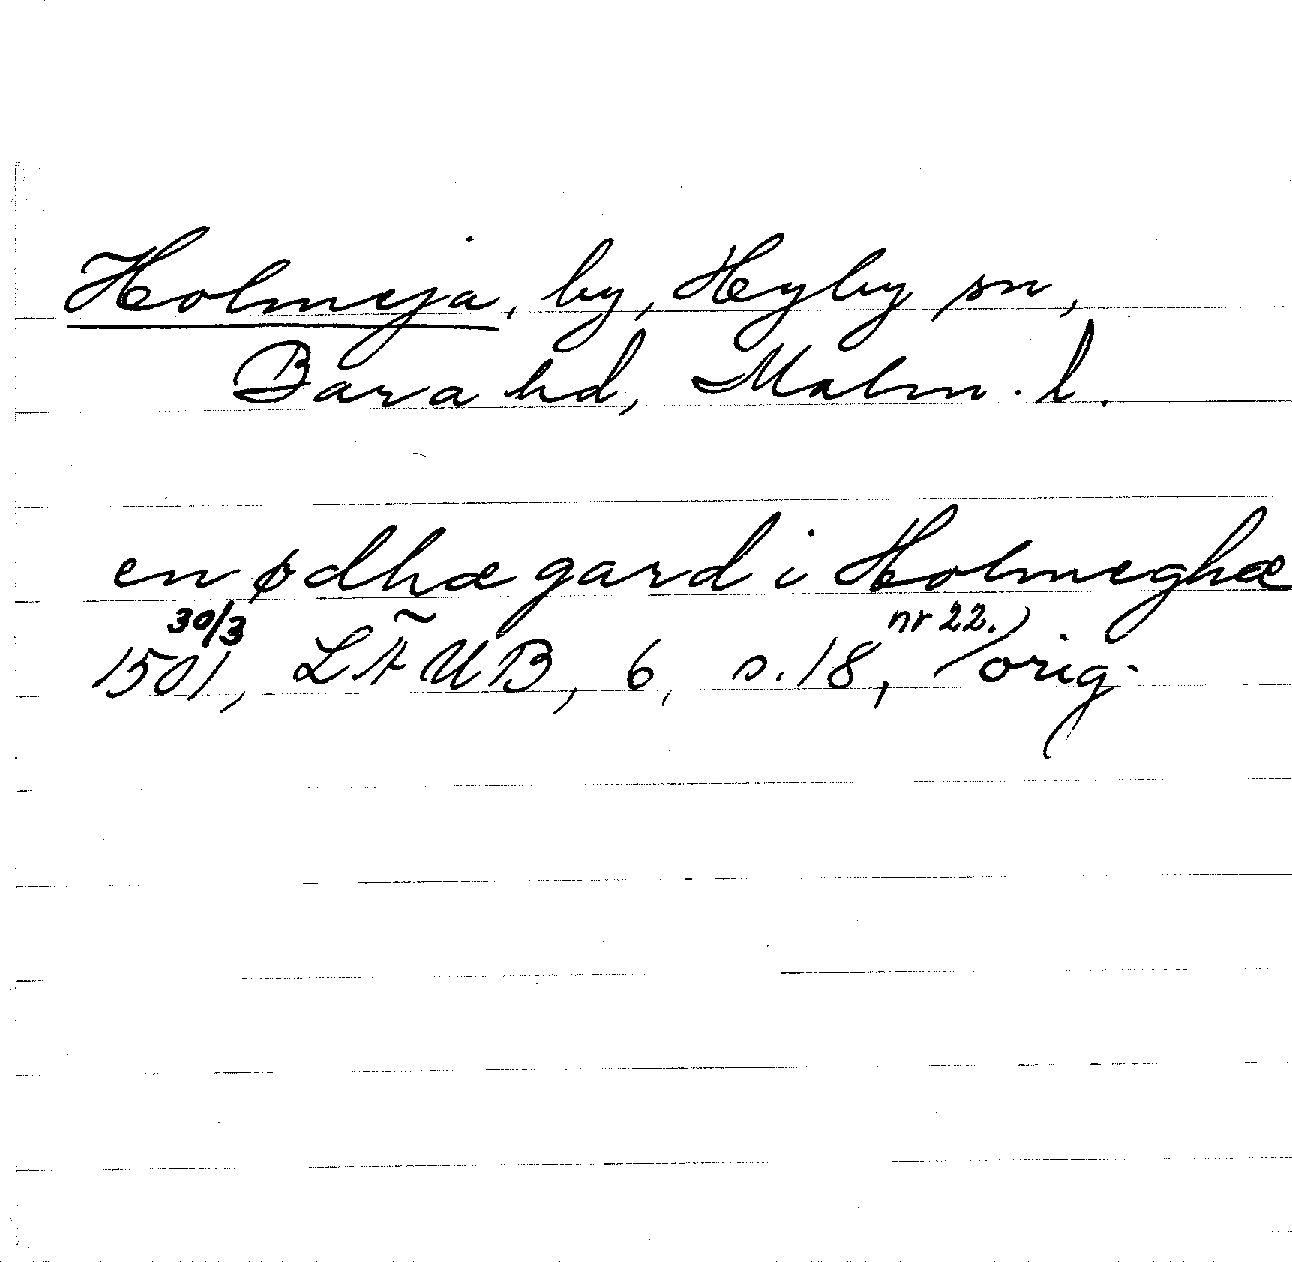 Holmeja, by, Hyby sn,
Bara hd, Malm. l.
en ødhæ gard i Holmeghæ
30/3 nr 22.
1501, LÄUB, 6, s. 18, orig.